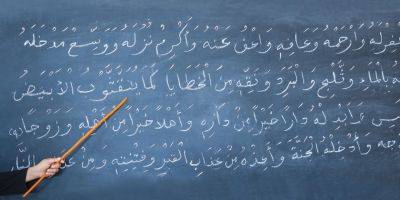 وَارْحَمْهُ وَعَافِهِ وَاعْفُ عَنْهُ وَأَكْرِمْ نُزُلَهُ وَوَسِّعْ مَدْخَلَهُ
بِالْمَاءِ وَثَلْجٍ وَالْبَرَدِ وَنَقِّهِ مِنَ الْخَطَايَا كَمَا يُنَقَّى الثَّوْبُ الْأَبْيَضُ
دَارًا خَيْرًا مِنْ دَارِهِ وَأَهْلًا خَيْرًا مِنْ أَهْلِهِ وَزَوْجًا
وَأَدْخِلْهُ الْجَنَّةَ وَأَعِذْهُ مِنْ عَذَابِ الْقَبْرِ وَفِتْنَتِهِ وَمِنْ عَذَابِ النَّار